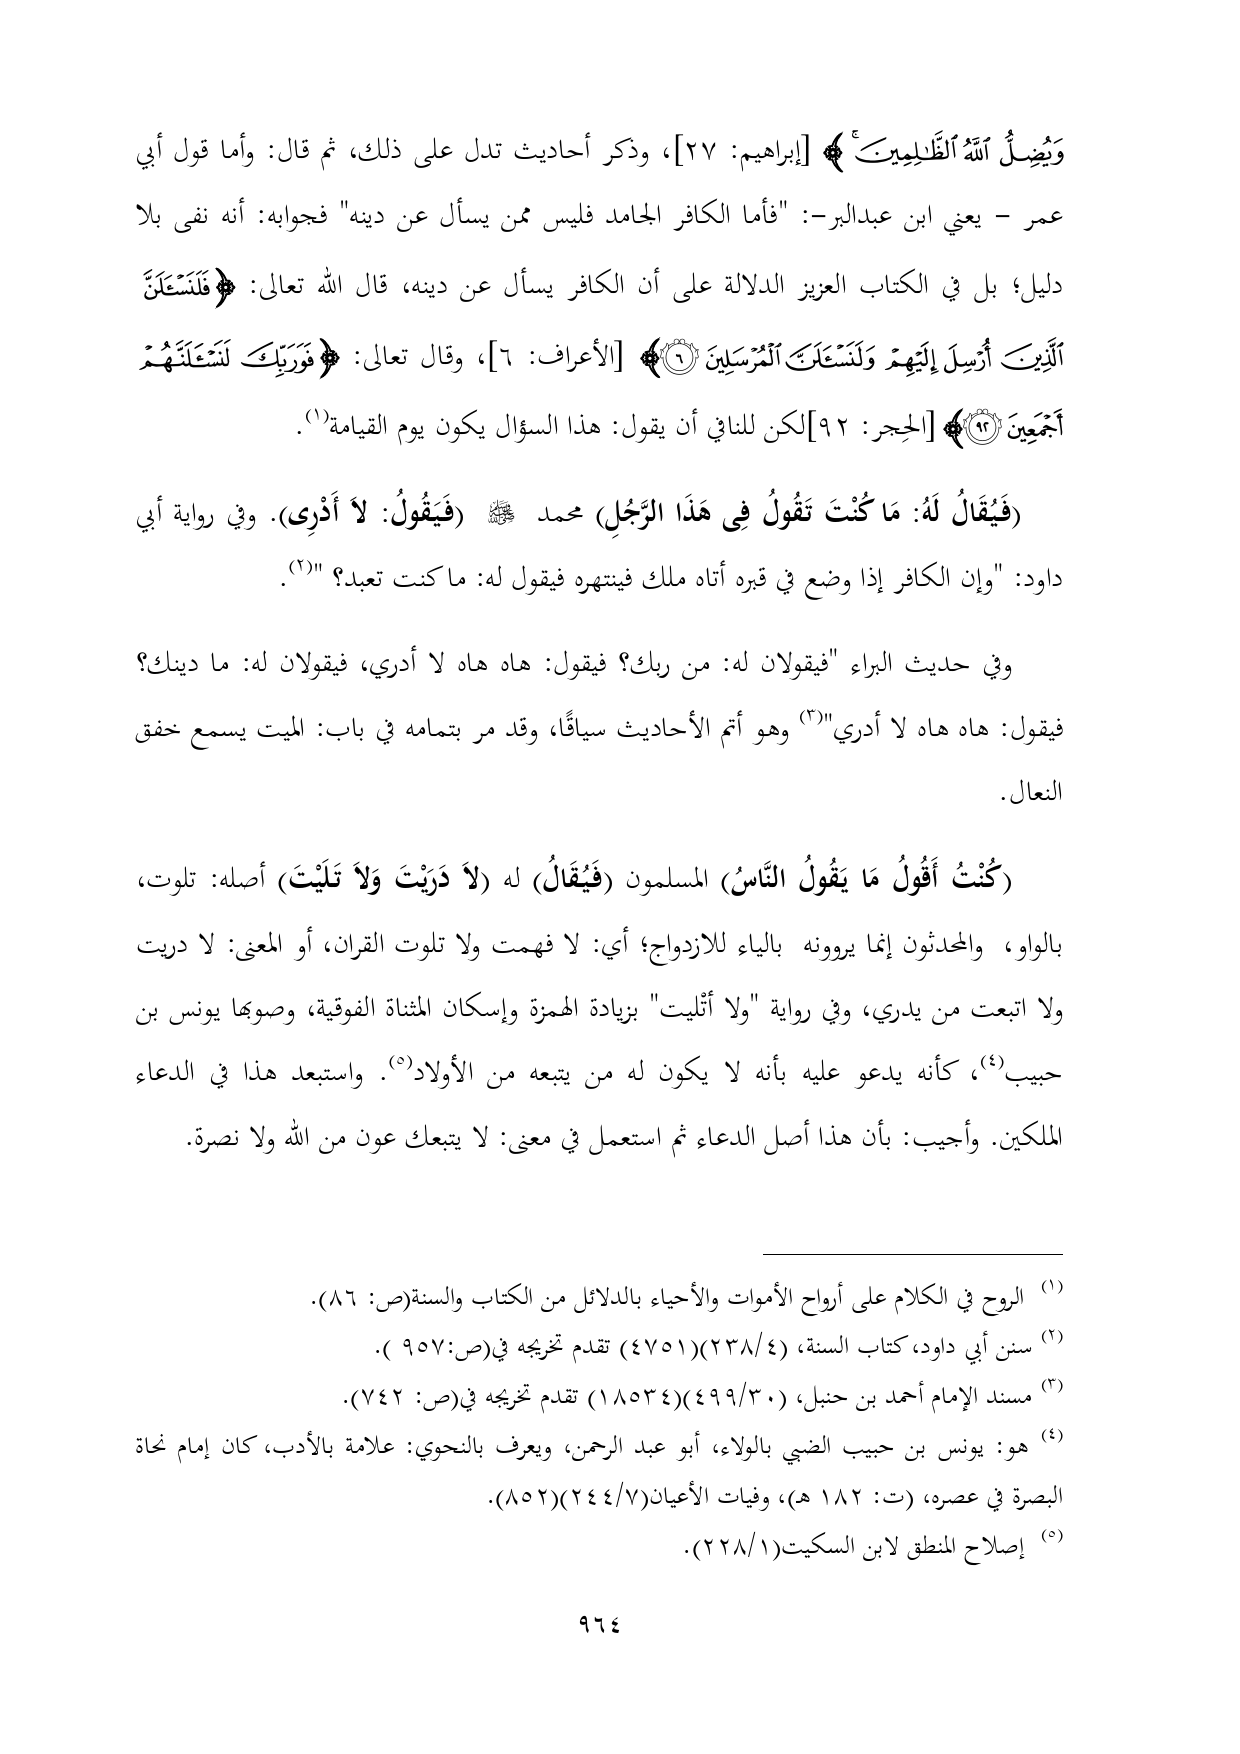 وَيُضِلُّ ٱللَّهُ ٱلظَّـٰلِمِينَ ۚ ﴾ [إبراهيم: ٢٧]، وذكر أحاديث تدل على ذلك، ثم قال: وأما قول أبي
عمر – يعني ابن عبدالبر–: "فأما الكافر الجامد فليس ممن يسأل عن دينه" فجوابه: أنه نفى بلا
دليل؛ بل في الكتاب العزيز الدلالة على أن الكافر يسأل عن دينه، قال الله تعالى: ﴿ فَلَنَسْـَٔلَنَّ
ٱلَّذِينَ أُرْسِلَ إِلَيْهِمْ وَلَنَسْـَٔلَنَّ ٱلْمُرْسَلِينَ ٦ ﴾ [الأعراف: ٦]، وقال تعالى: ﴿ فَوَرَبِّكَ لَنَسْـَٔلَنَّهُمْ
أَجْمَعِينَ ٩٢ ﴾ [الحِجر: ٩٢]لكن للنافي أن يقول: هذا السؤال يكون يوم القيامة(١).
(فَيُقَالُ لَهُ: مَا كُنْتَ تَقُولُ فِى هَذَا الرَّجُلِ) محمد ﷺ (فَيَقُولُ: لاَ أَدْرِى). وفي رواية أبي
داود: "وإن الكافر إذا وضع في قبره أتاه ملك فينتهره فيقول له: ما كنت تعبد؟ "(٢).
وفي حديث البراء "فيقولان له: من ربك؟ فيقول: هاه هاه لا أدري، فيقولان له: ما دينك؟
فيقول: هاه هاه لا أدري"(٣) وهو أتم الأحاديث سياقًا، وقد مر بتمامه في باب: الميت يسمع خفق
النعال.
(كُنْتُ أَقُولُ مَا يَقُولُ النَّاسُ) المسلمون (فَيُقَالُ) له (لاَ دَرَيْتَ وَلاَ تَلَيْتَ) أصله: تلوت،
بالواو، والمحدثون إنما يروونه بالياء للازدواج؛ أي: لا فهمت ولا تلوت القران، أو المعنى: لا دريت
ولا اتبعت من يدري، وفي رواية "ولا أتْليت" بزيادة الهمزة وإسكان المثناة الفوقية، وصوبها يونس بن
حبيب(٤)، كأنه يدعو عليه بأنه لا يكون له من يتبعه من الأولاد(٥). واستبعد هذا في الدعاء
الملكين. وأجيب: بأن هذا أصل الدعاء ثم استعمل في معنى: لا يتبعك عون من الله ولا نصرة.
(١) الروح في الكلام على أرواح الأموات والأحياء بالدلائل من الكتاب والسنة(ص: ٨٦).
(٢) سنن أبي داود، كتاب السنة، (٢٣٨/٤)(٤٧٥١) تقدم تخريجه في(ص:٩٥٧ ).
(٣) مسند الإمام أحمد بن حنبل، (٤٩٩/٣٠)(١٨٥٣٤) تقدم تخريجه في(ص: ٧٤٢).
(٤) هو: يونس بن حبيب الضبي بالولاء، أبو عبد الرحمن، ويعرف بالنحوي: علامة بالأدب، كان إمام نحاة
البصرة في عصره، (ت: ١٨٢ هـ)، وفيات الأعيان(٢٤٤/٧)(٨٥٢).
(٥) إصلاح المنطق لابن السكيت(٢٢٨/١).
٩٦٤